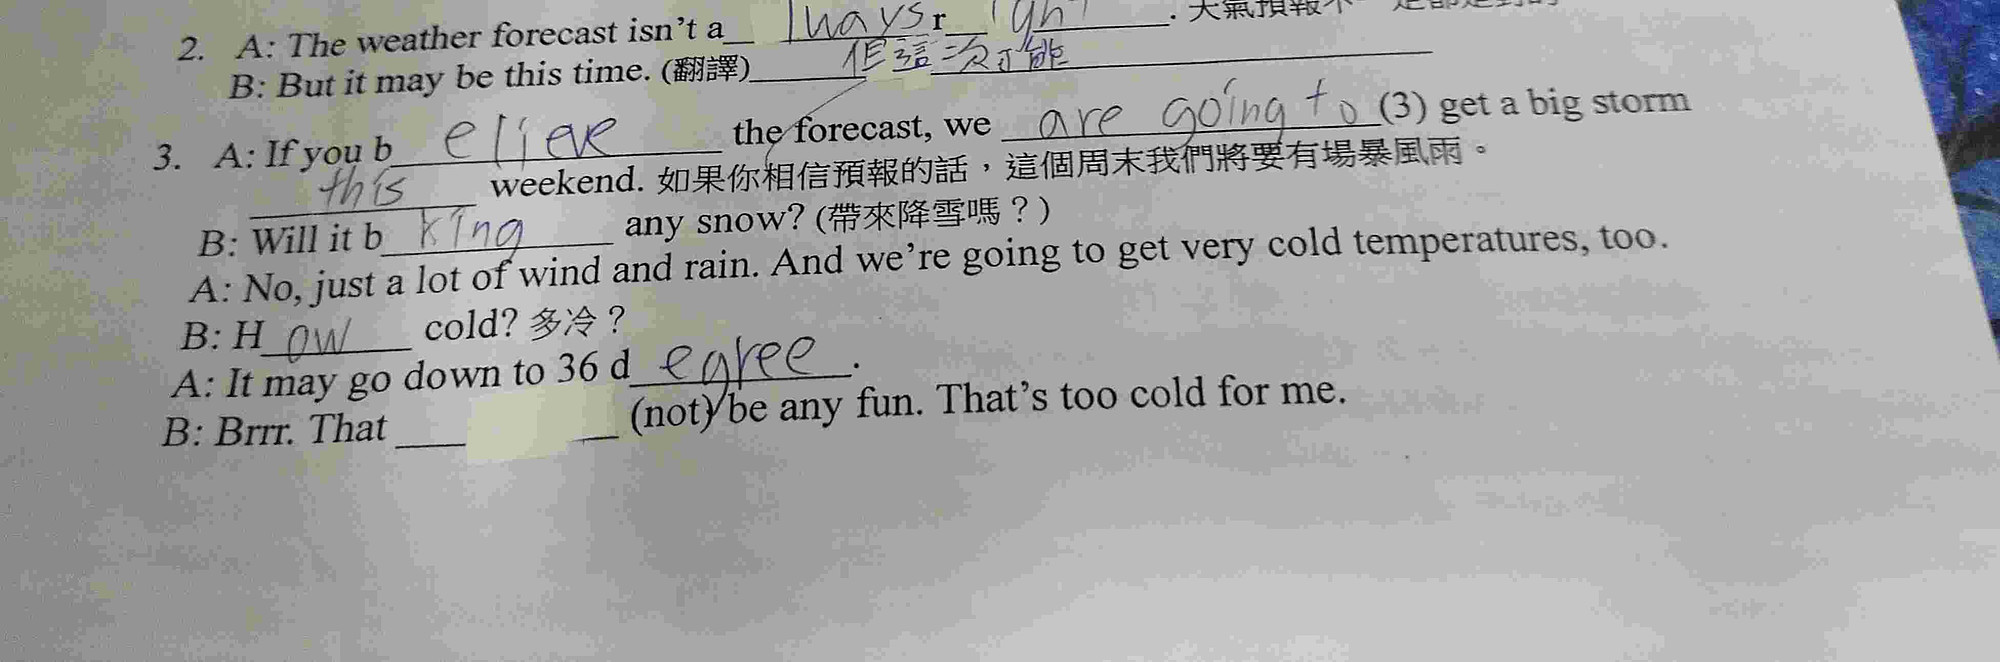 2. A: The weather forecast isn't a lways r ight . 天氣預報不一定都是對的
B: But it may be this time. (翻譯) 但這次可能
3. A: If you b elieve the forecast, we are going to (3) get a big storm
this weekend. 如果你相信預報的話，這個周末我們將要有場暴風雨。
B: Will it b king any snow? (帶來降雪嗎？)
A: No, just a lot of wind and rain. And we're going to get very cold temperatures, too.
B: H ow cold? 多冷？
A: It may go down to 36 d egree .
B: Brrr. That (not) be any fun. That's too cold for me.